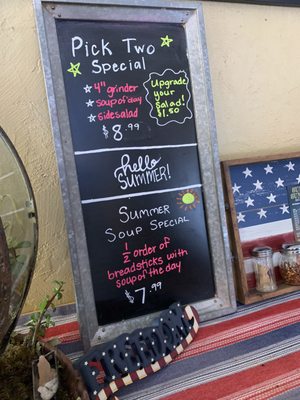 Pick Two
Special
4" grinder
soup of day
side salad
$8.99
Upgrade
your
salad!
$1.50
hello
SUMMER!
Summer
Soup Special
1/2 order of
breadsticks with
soup of the day
$7.99